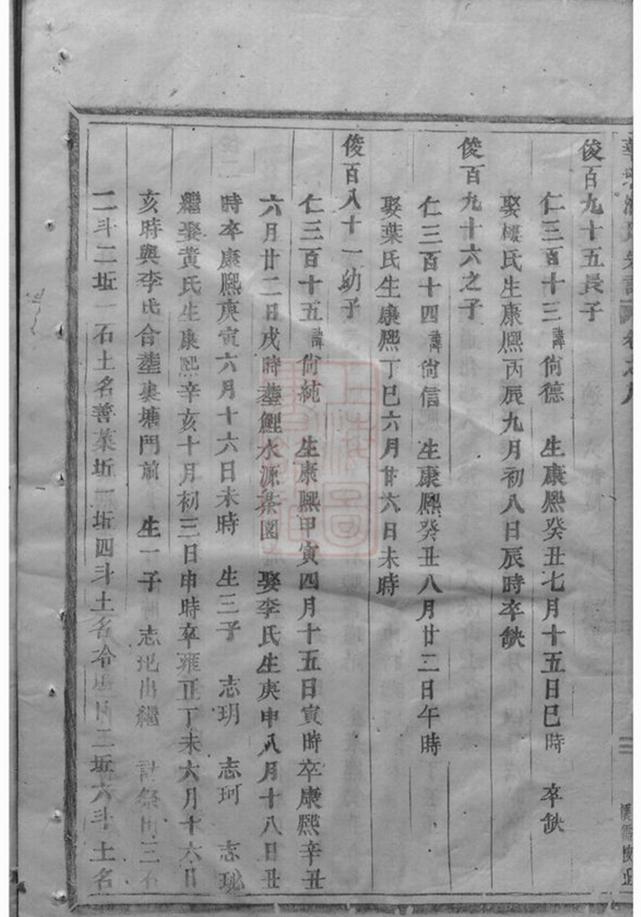 俊百九十五長子
仁三百十三 諱尙德 生康熙癸丑七月十五日巳時 卒缺
娶樓氏生康熙丙辰九月初八日辰時卒缺
俊百九十六之子
仁三百十四 諱尙信 生康熙癸丑八月廿二日午時
娶葉氏生康熙丁巳六月廿六日未時
俊百八十一幼子
仁三百十五 諱尙純 生康熙甲寅四月十五日寅時卒康熙辛丑
六月廿二日戌時塟鯉水源茶園 娶李氏生庚申八月十八日丑
時卒康熙庚寅六月十六日未時 生三子 志玥 志珂 志玭
繼娶黃氏生康熙辛亥十月初三日申時卒雍正丁未六月十六日
亥時與李氏合塟裏塘門前 生一子 出繼 祭田三石
二斗二坵一石土名善葉坵一坵四斗土名冷 二坵六斗土名